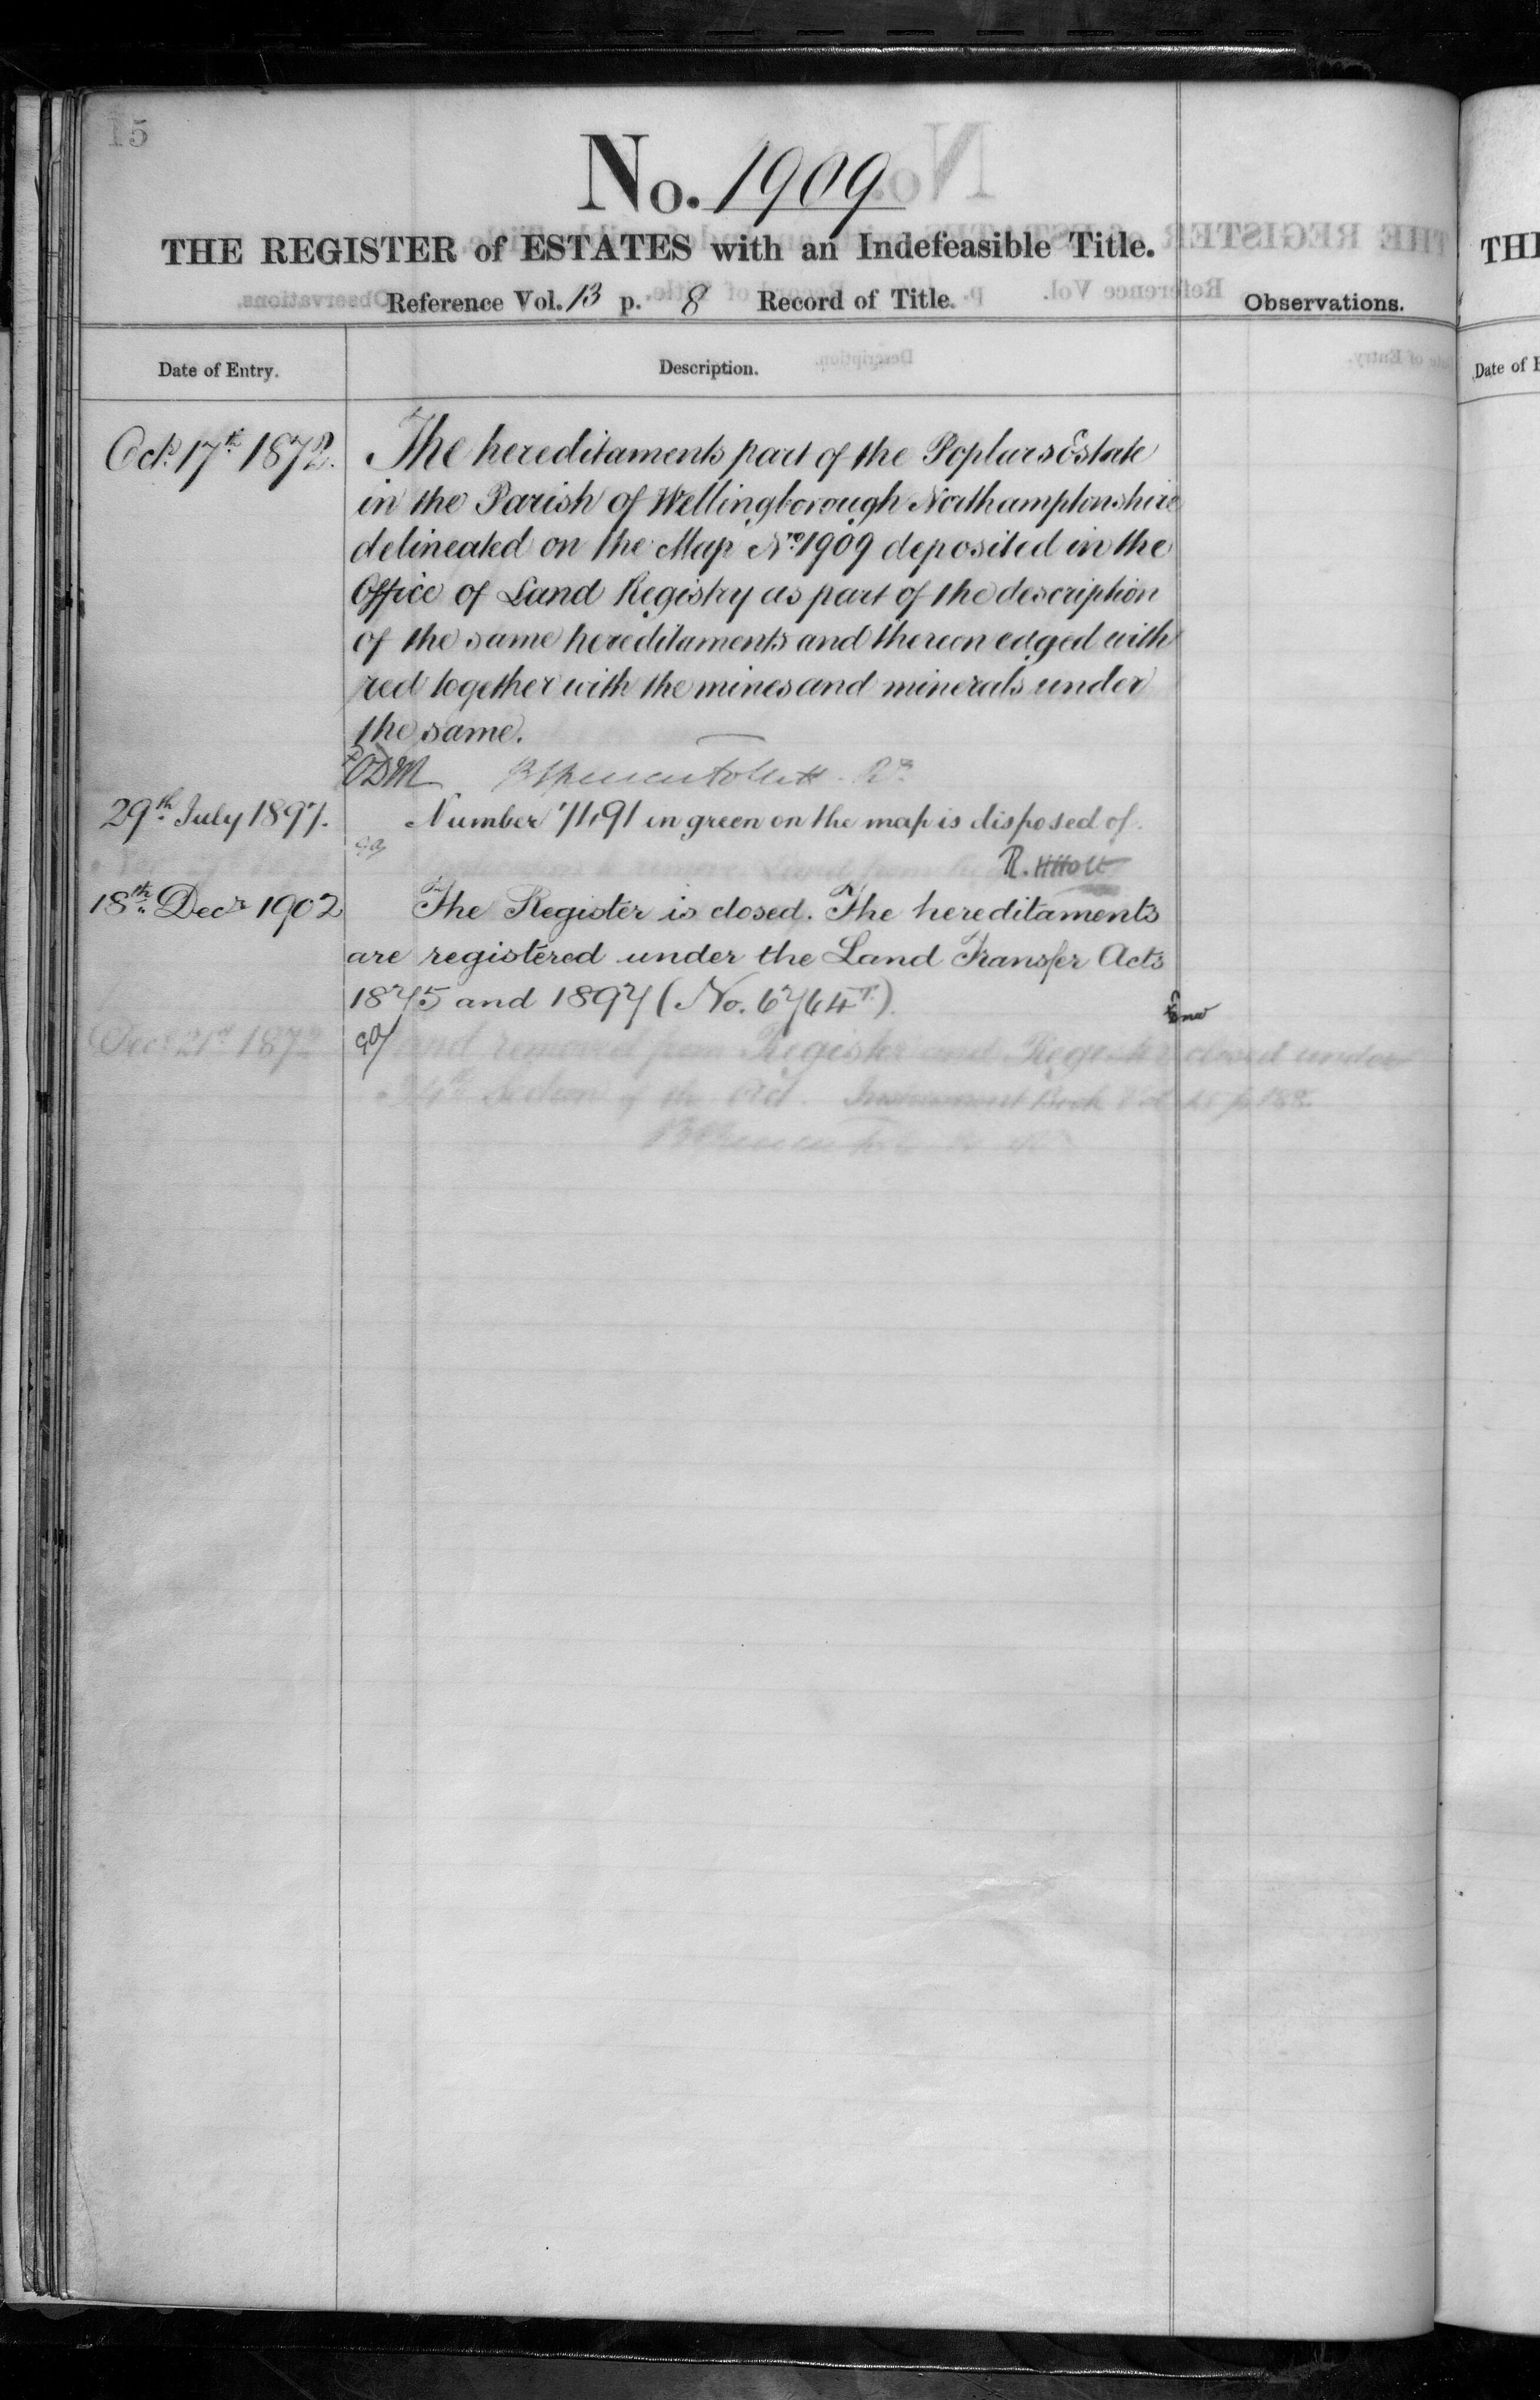 15
No. 1909
THE REGISTER of ESTATES with an Indefeasible Title.
Reference Vol. 13 p. 8 Record of Title.
Observations.
Date of Entry.
Description.
Oct. 17th 1872.
The hereditaments part of the Poplars Estate
in the Parish of Wellingborough Northamptonshire
delineated on the Map No. 1909 deposited in the
Office of Land Registry as part of the description
of the same hereditaments and thereon edged with
red together with the mines and minerals under
the same.
29th July 1897.
Number 71,91 in green on the map is disposed of.
R. HHolt
18th Decr 1902
The Register is closed. The hereditaments
are registered under the Land Transfer Acts
1875 and 1897 (No. 6764T.)
Decr 21st 1872
Land removed from Register and Register closed under
34th Section of the Act. Instrument Book
THE
Date of E